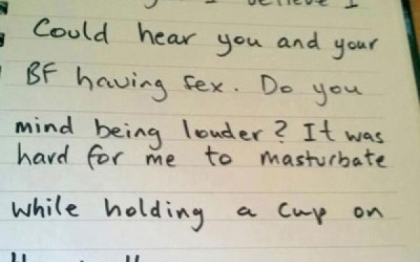 I believe I
Could hear you and your
BF having sex. Do you
mind being louder? It was
hard for me to masturbate
while holding a cup on